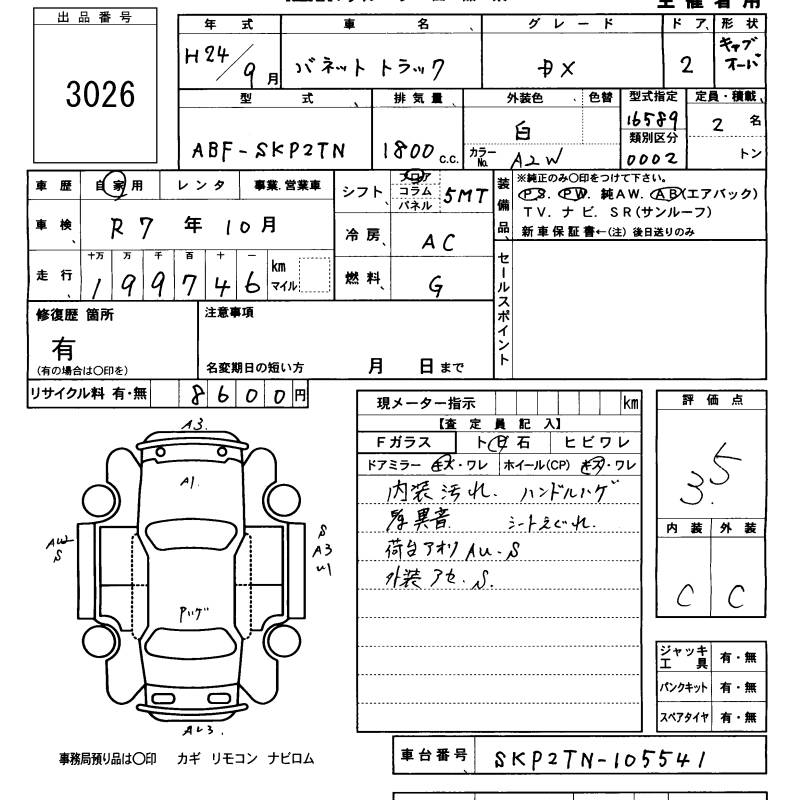 出品番号
3026
主催者用
年式 車名 グレード ドア 形状
H24/9月 バネット トラック DX 2 キャブオーバ
型式 排気量 外装色 色替 型式指定 定員・積載
ABF-SKP2TN 1800 c.c. 白 16589 2名
カラーNo. A2W 類別区分 0002 トン
車歴 自家用 レンタ 事業.営業車 シフト フロア コラム パネル 5MT
装備品 ※純正のみ〇印をつけて下さい。
PS. PW. 純AW. AB(エアバック)
TV. ナビ. SR(サンルーフ)
新車保証書←(注) 後日送りのみ
車検 R7年10月 冷房 AC
走行 十万 万 千 百 十 一
199746 km マイル 燃料 G
セールスポイント
修復歴 箇所 注意事項
有
(有の場合は〇印を) 名変期日の短い方 月 日まで
リサイクル料 有・無 8600円
現メーター指示 km
【査定員記入】
Fガラス ト日石 ヒビワレ
ドアミラー キズ・ワレ ホイール(CP) キズ・ワレ
内装汚れ. ハンドルハゲ
異音 シートえぐれ.
荷台アオリ AU.S
外装アセ.S.
評価点
3.5
内装 外装
C C
A3.
A1.
AW
S
S
A3
U1
Pハゲ
AU3.
ジャッキ工具 有・無
パンクキット 有・無
スペアタイヤ 有・無
事務局預り品は〇印 カギ リモコン ナビロム
車台番号 SKP2TN-105541